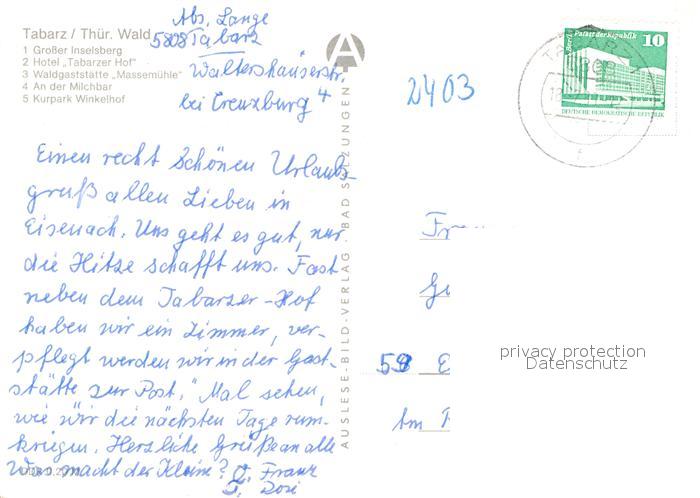 Tabarz / Thür. Wald
1 Großer Inselsberg
2 Hotel „Tabarzer Hof"
3 Waldgaststätte „Massemühle"
4 An der Milchbar
5 Kurpark Winkelhof
Abs. Lange
5808 Tabarz
Waltershäuserstr. 4
bei Creuzburg
2403
Palast der Republik
10
DEUTSCHE DEMOKRATISCHE REPUBLIK
TABARZ
Einen recht schönen Urlaubs-
gruß allen Lieben in
Eisenach. Uns geht es gut, nur
die Hitze schafft uns. Fast
neben dem Tabarzer-Hof
haben wir ein Zimmer, ver-
pflegt werden wir in der Gast-
stätte zur Post." Mal sehen,
wie wir die nächsten Tage rum-
kriegen. Herzliche Grüße an alle
Was macht der Kleine? O. Franz
Dori
AUSLESE-BILD-VERLAG · BAD SALZUNGEN
59 E
Am
privacy protection
Datenschutz